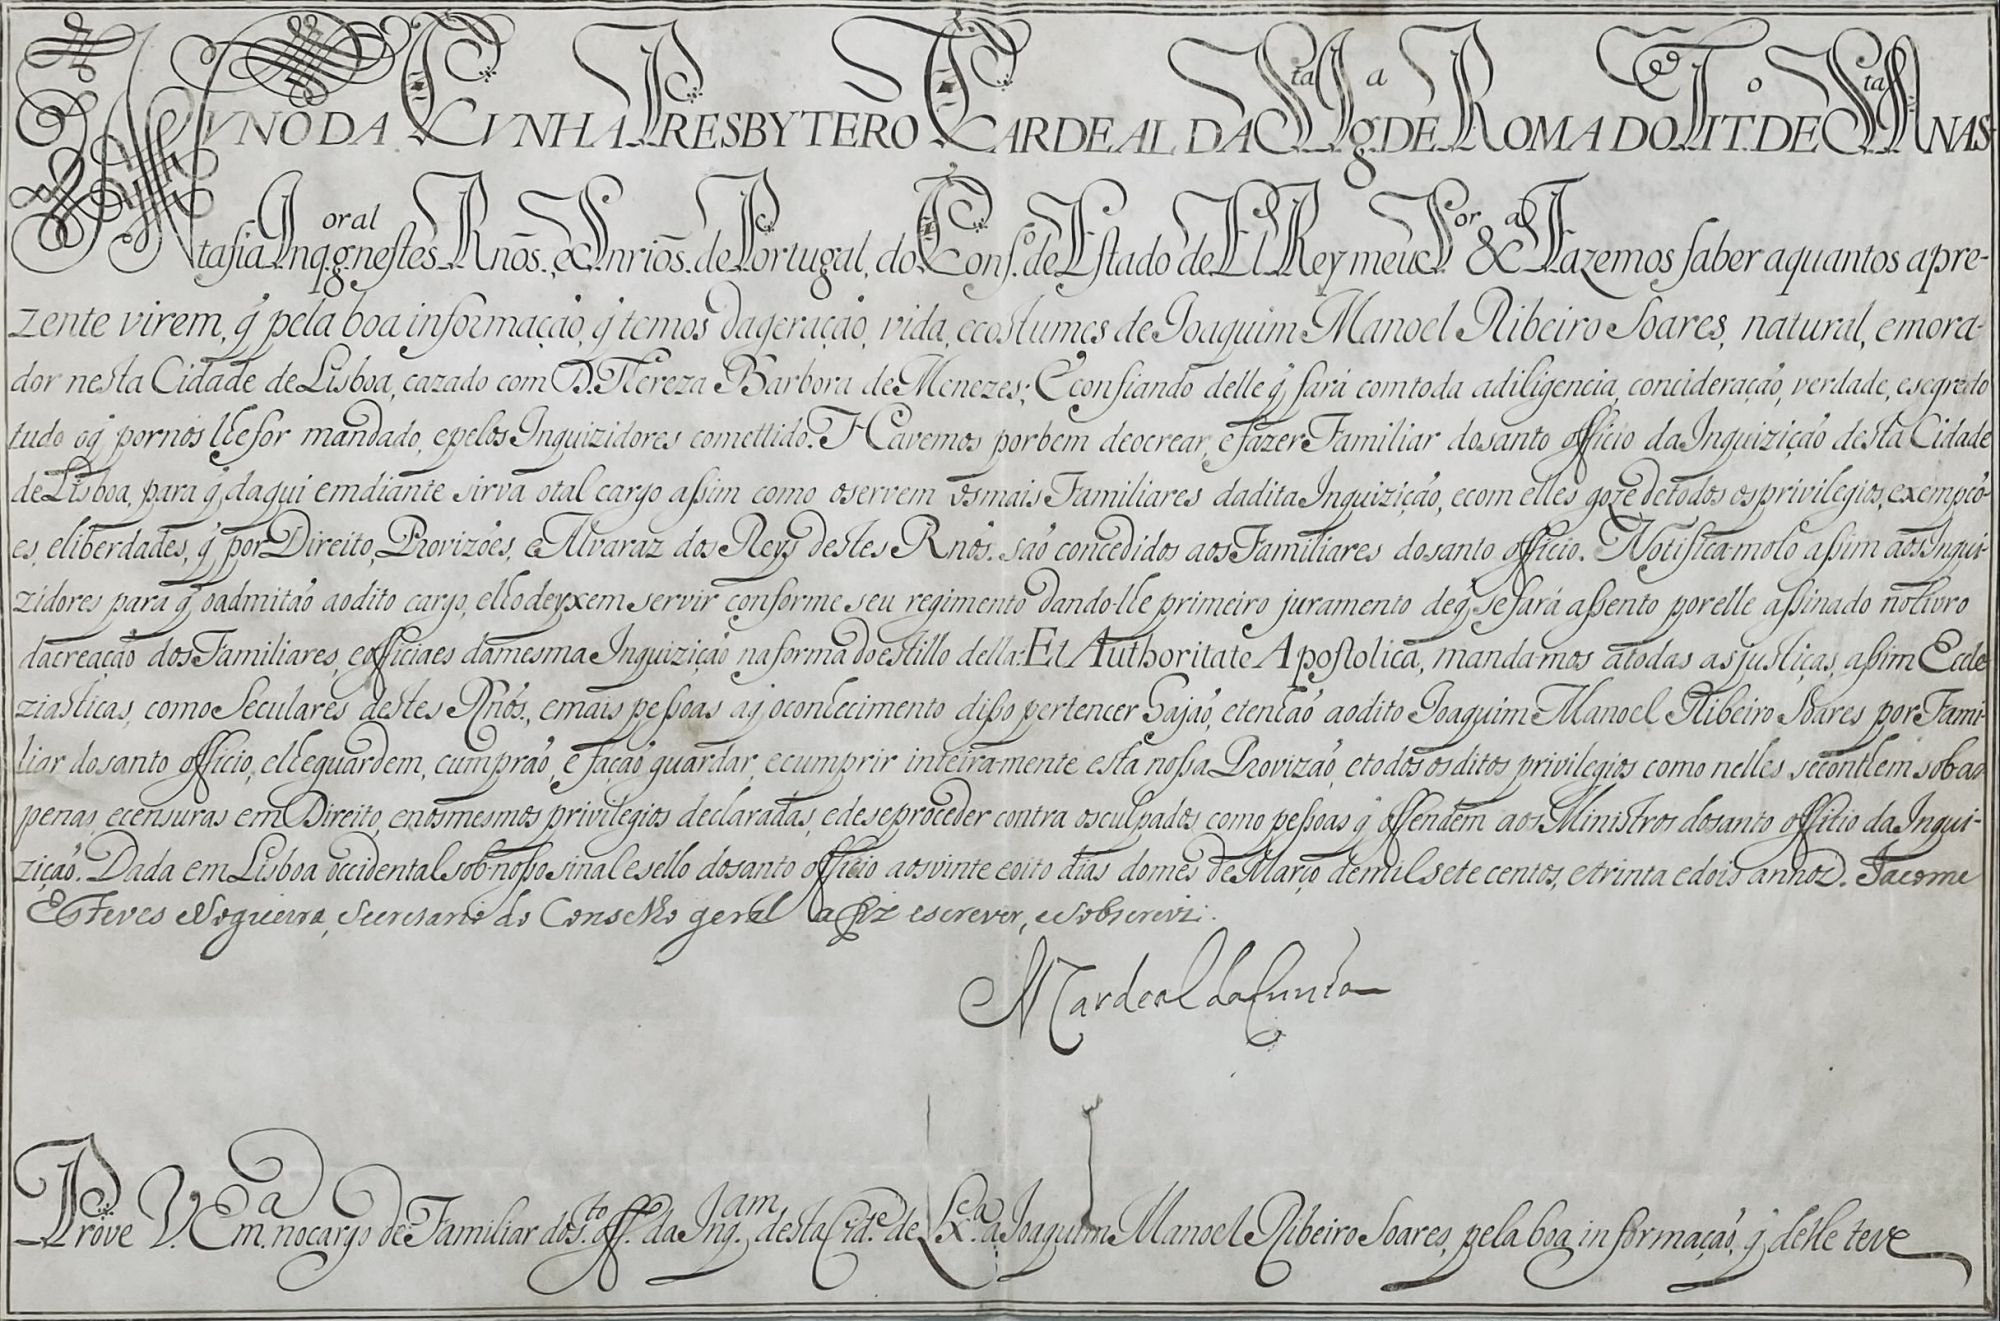 NUNO DA CUNHA PRESBYTERO CARDEAL DA Sta Igª DE ROMA DO TITº DE Sta ANAS-
tasia Inqqor gral nestes Rnõs, e Snriõs de Portugal, do Consº de Estado de El Rey meu Sor &a Fazemos saber a quantos a pre-
zente virem, q̃ pela boa informação, q̃ temos da geração, vida, e costumes de Joaquim Manoel Ribeiro Soares, natural, e mora-
dor nesta Cidade de Lisboa, cazado com D. Thereza Barbora de Menezes; E confiando delle q̃ fará com toda a diligencia, concideração, verdade, e segredo
tudo o q̃ por nós lhe for mandado, e pelos Inquizidores comettido. Havemos por bem de o crear, e fazer Familiar do santo officio da Inquizição desta Cidade
de Lisboa, para q̃ daqui em diante sirva o tal cargo assim como o servem os mais Familiares da dita Inquizição, e com elles goze de todos os privilegios, exempçõ-
es, e liberdades, q̃ por Direito, Provizões, e Alvaraz dos Reys destes Rnõs. são concedidos aos Familiares do santo officio. Notificamolo assim aos Inqui-
zidores para q̃ o admitão ao dito cargo, e lho deyxem servir conforme seu regimento dando-lhe primeiro juramento de q̃ se fará assento por elle assinado no livro
da creação dos Familiares, e officiaes da mesma Inquizição na forma do estillo della: Et Authoritate Apostolica, manda-mos a todas as justiças, assim Eccle-
ziasticas, como Seculares destes Rnõs., e mais pessoas a q̃ o conhecimento disso pertencer hajão, e tenhão ao dito Joaquim Manoel Ribeiro Soares por Fami-
liar do santo officio, e lhe guardem, cumprão, e fação guardar, e cumprir inteira-mente esta nossa Provizão, e todos os ditos privilegios como nelles se conthem sob as
penas, e censuras em Direito, e nos mesmos privilegios declaradas, e de se proceder contra os culpados, como pessoas q̃ offendem aos Ministros do santo officio da Inqui-
zição. Dada em Lisboa occidental sob nosso sinal e sello do santo officio aos vinte e oito dias do mes de Março de mil sete centos, e trinta e dois annos. Jacome
Esteves Nogueira, Secretario do Conselho geral a fiz escrever, e sobscrevi:
N Cardeal da Cunha
Prove V. Emª. no cargo de Familiar do Sto. Offº. da Inqam. desta Cidº. de Lxca. a Joaquim Manoel Ribeiro Soares, pela boa informação, q̃ delle teve